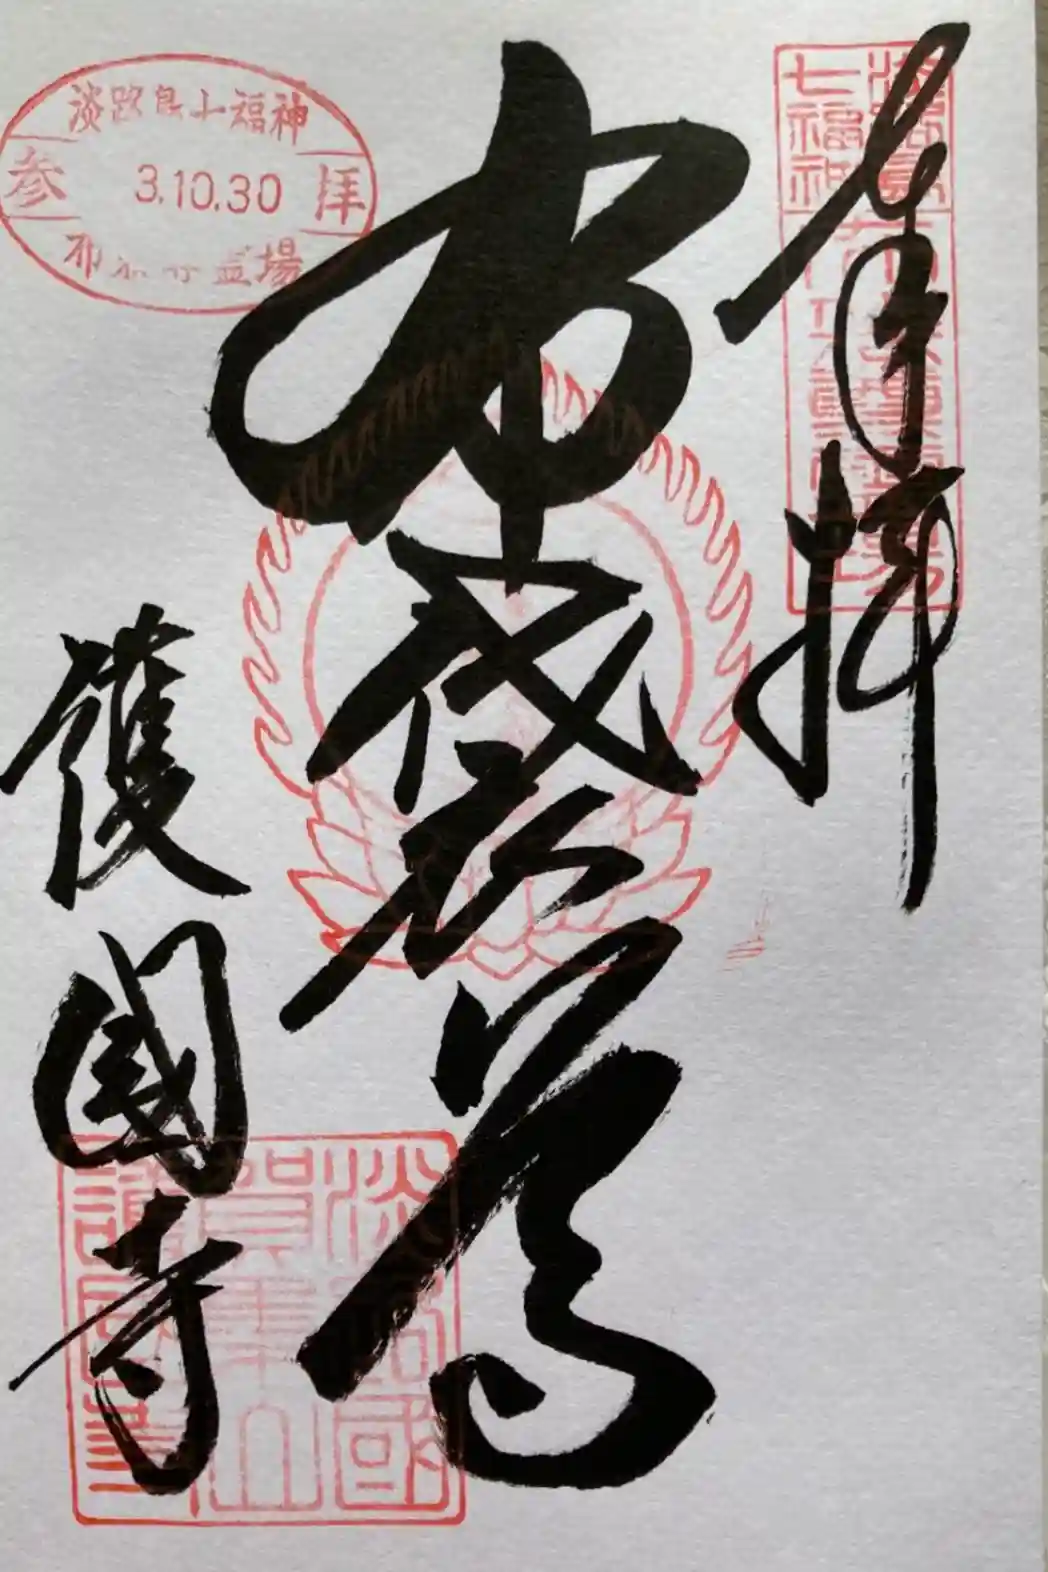 奉拝
布袋尊
護國寺
淡路島七福神
参 3.10.30 拝
布袋尊霊場
淡路島
七福神
淡路國
賀集山
護国寺